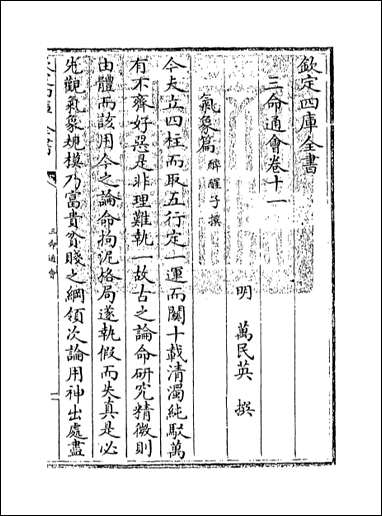 欽定四庫全書
三命通會卷十一
明 萬民英 撰
氣象篇 醉醒子撰
今夫立四柱而取五行定一運而關十載清濁純駁萬
有不齊好惡是非理難執一故古之論命研究精微則
由體而該用今之論命拘泥格局遂執假而失真是必
先觀氣象規模乃富貴貧賤之綱領次論用神出處盡
三命通會